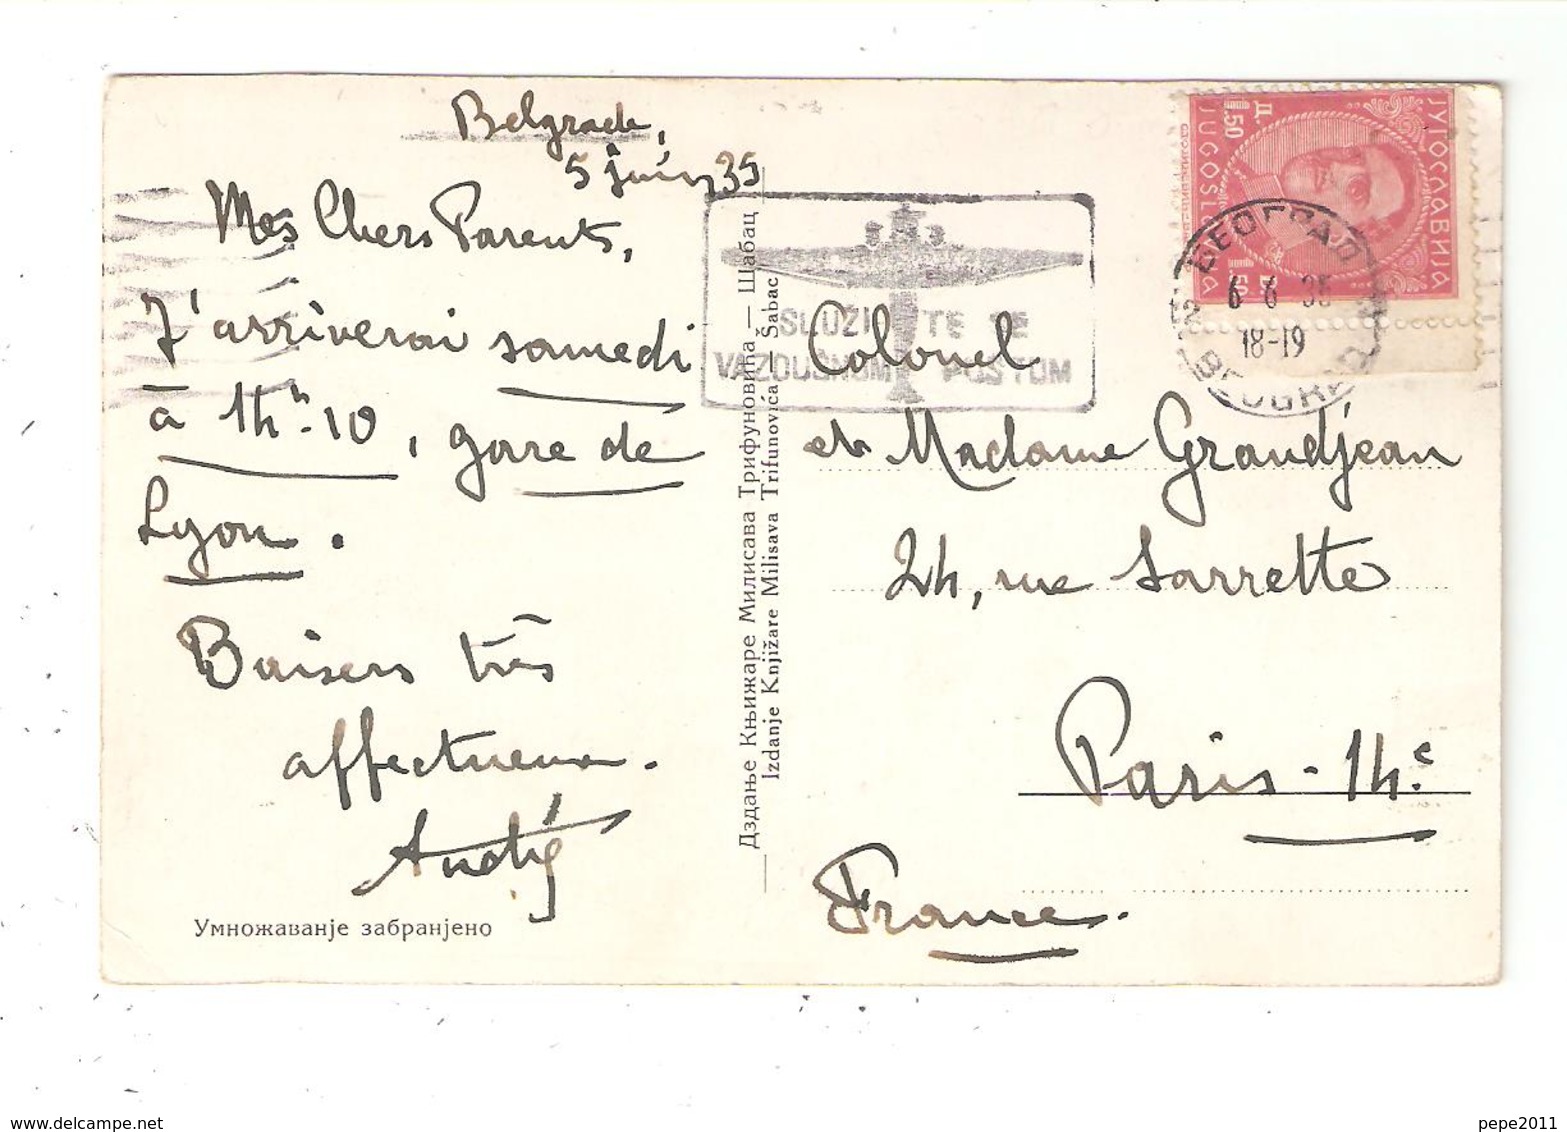 Belgrade,
5 juin 35
Mes Chers Parents,
J'arriverai samedi
à 14h-10, gare de
Lyon.
Baisers très
affectueux.
Умножавање забрањено
Дздање Књижаре Милисава Трифуновића — Шабац
Izdanje Knjižare Milisava Trifunovića — Šabac
SLUŽITE SE
VAZDUŠNOM POSTOM
ЈУГОСЛАВИЈА
1.50 Д
JUGOSL
БЕОГРАД
6 6 35
18-19
BEOGRAD
Colonel
et Madame Grandjean
24, rue Sarrette
Paris-14e
France.
delcampe.net
pepe2011